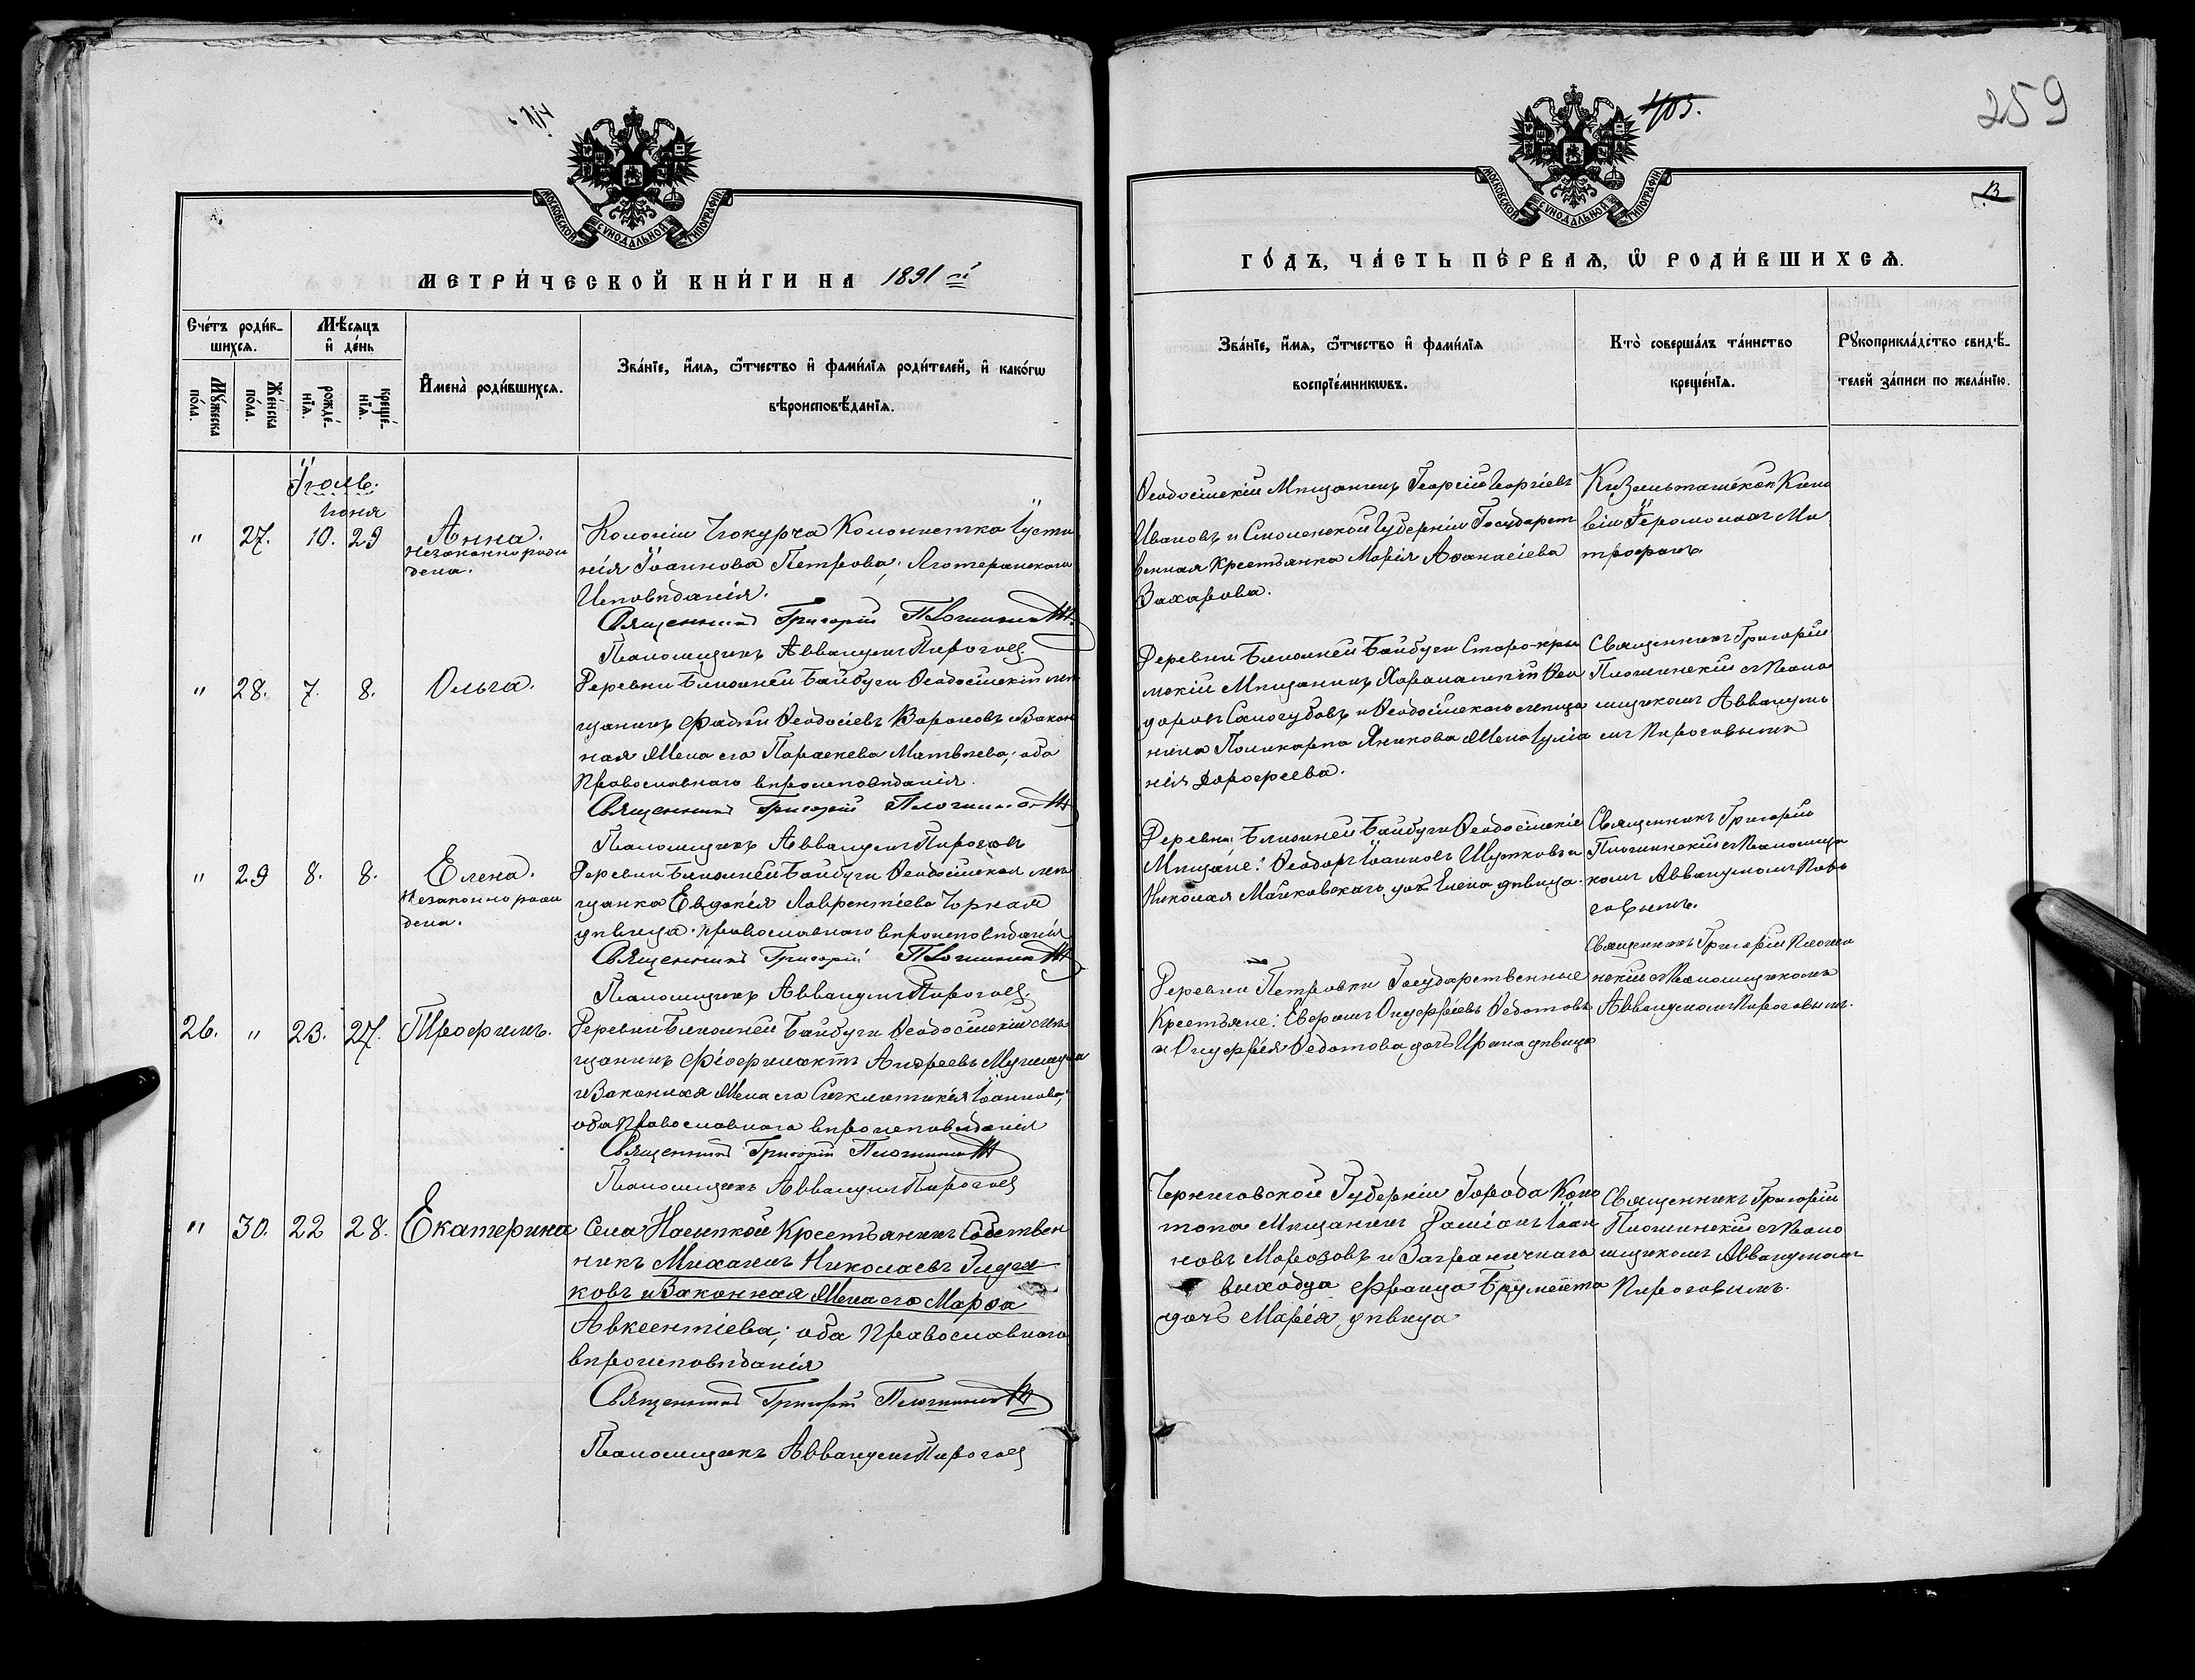 259
405.
13
МОСКОВСКОЙ СУНОДАЛЬНОЙ ТИПОГРАФІИ
МЕТРИ́ЧЕСКОЙ КНИ́ГИ НА 1891 й
Сче́тъ роди́в-
шихсѧ.
Мѹ́жеска по́ла.
Же́нска по́ла.
Мѣ́сѧцъ
и҆ де́нь
рожде́-
нїѧ.
креще́-
нїѧ.
И҆мена̀ роди́вшихсѧ.
Зва́нїе, и҆́мѧ, ѻ҆́тчество и҆ фами́лїѧ роди́телей, и҆ како́гѡ
вѣроисповѣ́данїѧ.
Іюль.
Іюня
" 27. 10. 29
Анна.
Незаконнорож
дена.
Колоніи Чокурча Колонистка Іусти
нія Іоаннова Петрова, Лютеранскаго
Исповѣданія.
Священникъ Григорій
Псаломщикъ Аввакумъ Пироговъ
" 28. 7. 8.
Ольга.
Деревни Ближней Байбуги Ѳеодосійскій мѣ
щанинъ Фадѣй Ѳеодосіевъ Вороновъ и закон
ная жена его Параскева Матвѣева; оба
Православнаго вѣроисповѣданія.
Священникъ Григорій
Псаломщикъ Аввакумъ Пироговъ
" 29 8. 8.
Елена.
Незаконнорож
дена.
Деревни Ближней Байбуги Ѳеодосійская мѣ
щанка Евдокія Лаврентіева Чорная
дѣвица. православнаго вѣроисповѣданія
Священникъ Григорій
Псаломщикъ Аввакумъ Пироговъ
26. " 23. 27.
Трофимъ.
Деревни Ближней Байбуги Ѳеодосійскій мѣ
щанинъ Андреевъ
и Законная жена его Синклитикія Іоаннова;
оба Православнаго вѣроисповѣданія
Священникъ Григорій
Псаломщикъ Аввакумъ Пироговъ
" 30. 22 28.
Екатерина
Села Насыпкой Крестьянинъ Собствен
никъ Михаилъ Николаевъ
ковъ и Законная жена его Марѳа
Авксентіева; оба Православнаго
вѣроисповѣданія
Священникъ Григорій
Псаломщикъ Аввакумъ Пироговъ
МОСКОВСКОЙ СУНОДАЛЬНОЙ ТИПОГРАФІИ
ГО́ДЪ, ЧА́СТЬ ПЕ́РВАѦ, Ѡ҆ РОДИ́ВШИХСѦ.
Зва́нїе, и҆́мѧ, ѻ҆́тчество и҆ фами́лїѧ
воспрїе́мникѡвъ.
Кто̀ соверша́лъ та́инство
креще́нїѧ.
Рѹкоприкла́дство свидѣ́-
телей за́писи по жела́нїю.
Ѳеодосійскій Мѣщанинъ Георгій Георгіевъ
Ивановъ и Смоленской Губерніи Государст
венная Крестьянка Марія Аѳанасіева
Захарова.
Кизилташской Кино
віи Іеромонахъ Ми
трофанъ
Деревни Ближней Байбуги Старо-кры
мскій Мѣщанинъ Харалампій Ѳео
доровъ и Ѳеодосійскаго мѣща
нина Поликарпа Яникова жена Іуліа
нія Дороѳеева.
Священникъ Григорій
съ Псало
мщикомъ Аввакумо
мъ Пироговымъ
Деревни Ближней Байбуги Ѳеодосійскіе
Мѣщане: Ѳеодоръ Іоанновъ и
Николая Маньковскаго дочь Елена дѣвица.
Священникъ Григорій
съ Псаломщи
комъ Аввакумомъ Пиро
говымъ.
Деревни Петровки Государственные
Крестьяне: Ефремъ Онуфріевъ Ѳедотовъ
и Онуфрія Ѳедотова дочь Ирина дѣвица
Священникъ Григорій
съ Псаломщикомъ
Аввакумомъ Пироговымъ.
Черниговской Губерніи Города Коно
топа Мѣщанинъ Даміанъ Іоан
новъ Морозовъ и Заграничнаго
выходца Франца
дочь Марія дѣвица
Священникъ Григорій
съ Псало
мщикомъ Аввакумомъ
Пироговымъ.